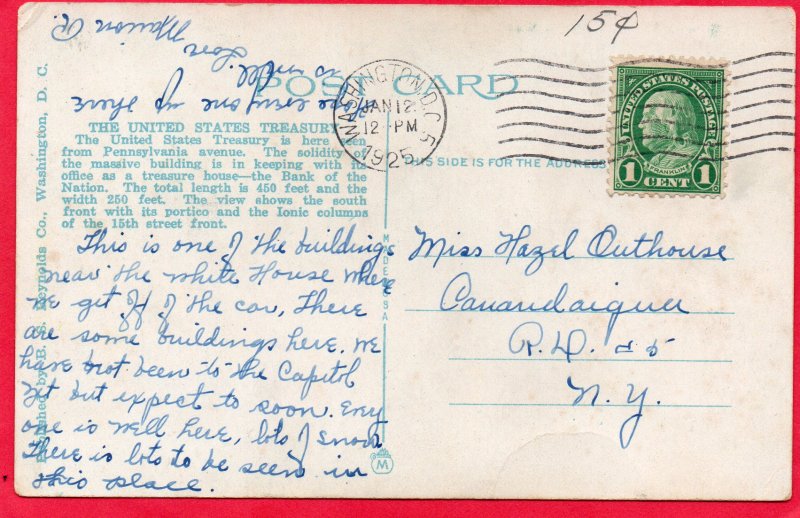 15¢
POST CARD
WASHINGTON, D.C. 5
JAN 12
12 - PM
1925
UNITED STATES POSTAGE
FRANKLIN
1 CENT 1
THIS SIDE IS FOR THE ADDRESS
THE UNITED STATES TREASURY
The United States Treasury is here seen
from Pennsylvania avenue. The solidity of
the massive building is in keeping with its
office as a treasure house—the Bank of the
Nation. The total length is 450 feet and the
width 250 feet. The view shows the south
front with its portico and the Ionic columns
of the 15th street front.
Published by B. S. Reynolds Co., Washington, D. C.
MADE IN USA
M
This is one of the buildings
near the White House where
we get off of the car, There
are some buildings here. We
have not been to the Capitol
yet but expect to soon. Evry
one is well here, lots of snow
There is lots to be seen in
this place.
Hope everyone up there
is well.
Love
Marion
Miss Hazel Outhouse
Canandaigua
R.D. #5
N.Y.